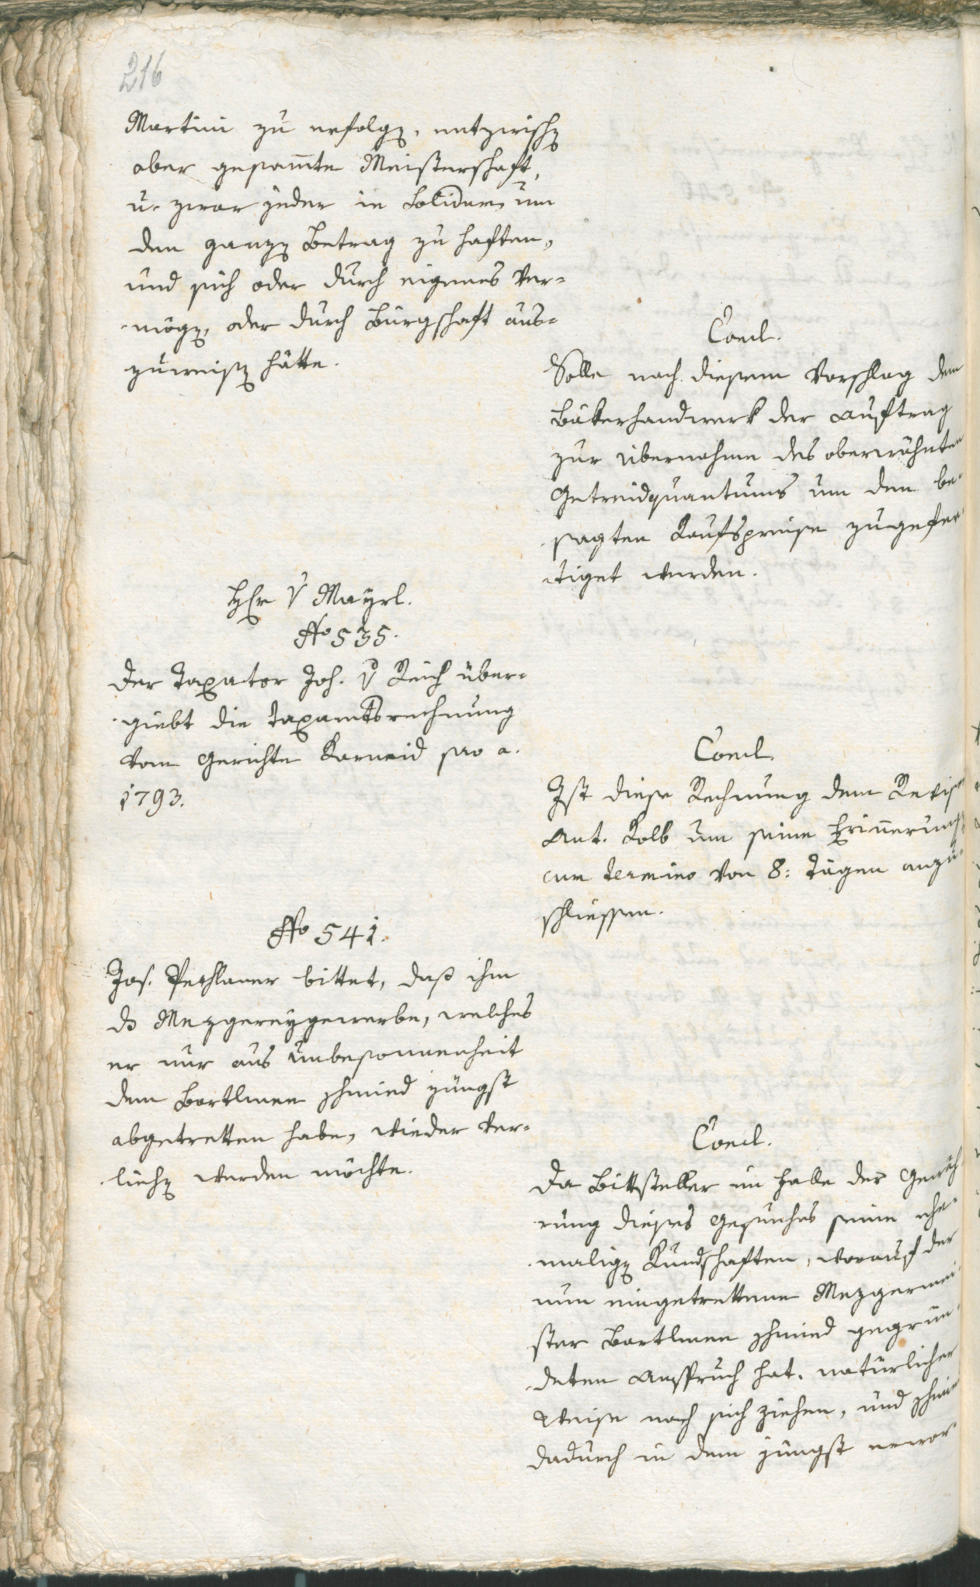 216
Martini zu erfolgen, entzwischen
aber gesammte Meisterschaft,
u. zwar jeder in solidum, um
den ganzen Betrag zu haften,
und sich oder durch eigenes Ver-
mögen, oder durch Bürgschaft aus-
zuweisen hätte.
Concl.
Solle nach diesem Vorschlag dem
Bäkerhandwerk der Auftrag
zur Übernahme des oberwähnten
Getreidquantums um den be-
sagten Kaufspreise zugefer-
tiget werden.
Herr v Mayrl.
No 535.
Der Taxator Joh. v Reich über-
giebt die Taxamtsrechnung
vom Gerichte Karneid pro a.
1793.
Concl.
Ist diese Rechnung dem Revisor
Ant. Kolb um seine Erinnerung
cum termino von 8: Tägen anzu-
schliessen.
No 541.
Jos. Pechlaner bittet, daß ihm
ds Mezgereygewerbe, welches
er nur aus Unbesonnenheit
dem Bartlmee Schmied jüngst
abgetretten habe, wieder ver-
liehen werden möchte.
Concl.
Da Bittsteller im Falle der Gewäh-
rung dieses Gesuches seine ehe-
maligen Kundschaften, worauf der
nun eingetrettene Mezgermei-
ster Bartlmee Schmied gegrün-
deten Anspruch hat, natürlicher
Weise nach sich ziehen, und Schmied
dadurch in dem jüngst erwor-